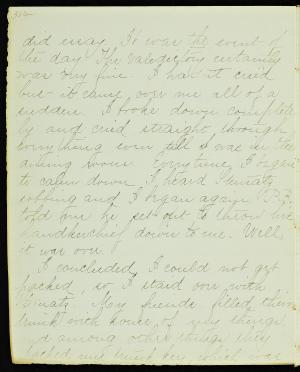 did essay. It was the event of
the day. The valedictory certainly
was very fine. I hadn't cried
but it came over me all of a
sudden. I broke down complete
ly and cried straight through
everything even till I was in the
dining room. Everytime I began
to calm down I heard
sobbing and I began again. P.G.
told me he set out to throw his
handkerchief down to me. Well
it was over.
I concluded I could not get
packed so I staid over with
My friends filled their
trunk with some of my things
and among other things they
packed my trunk key which was